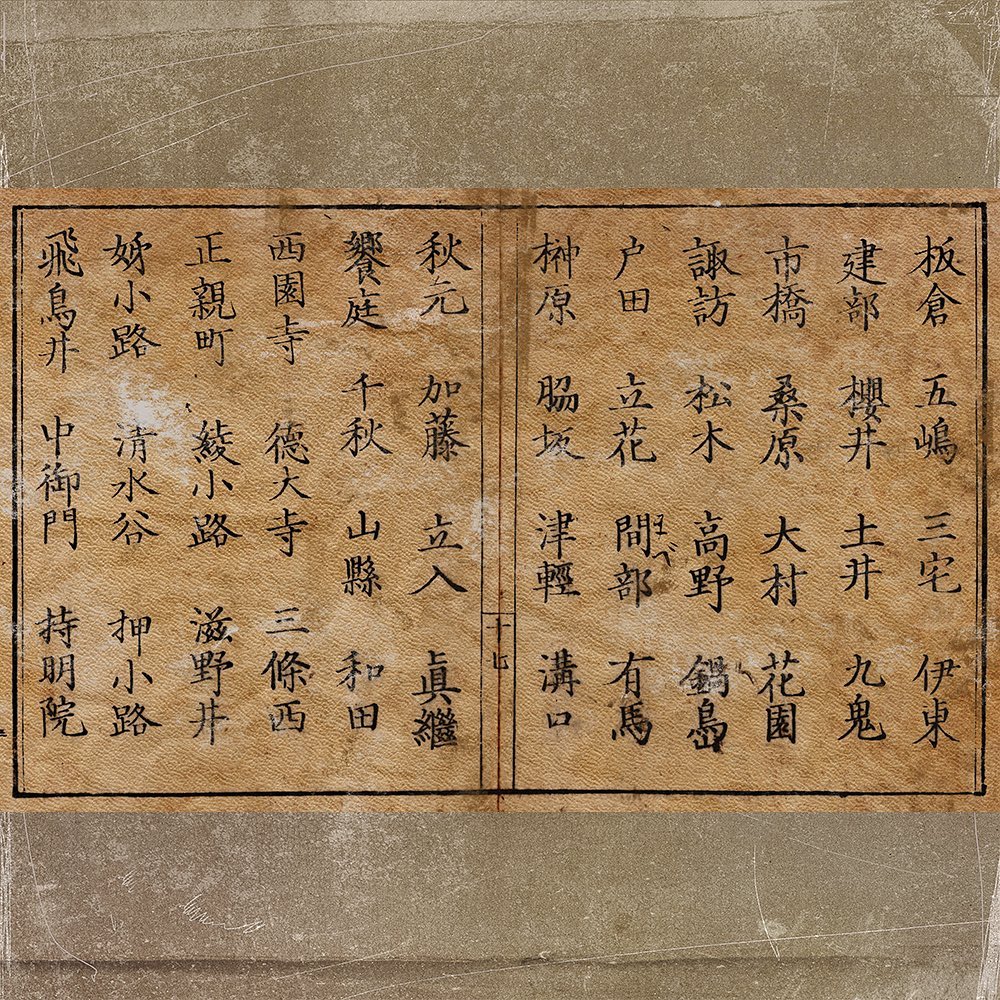 板倉 五嶋 三宅 伊東
建部 櫻井 土井 九鬼
市橋 桑原 大村 花園
諏訪 松木 高野 鍋島
戸田 立花 間部 有馬
まべ
榊原 脇坂 津輕 溝口
十七
秋元 加藤 立入 眞繼
饗庭 千秋 山縣 和田
西園寺 德大寺 三條西
正親町 綾小路 滋野井
姊小路 清水谷 押小路
飛鳥井 中御門 持明院